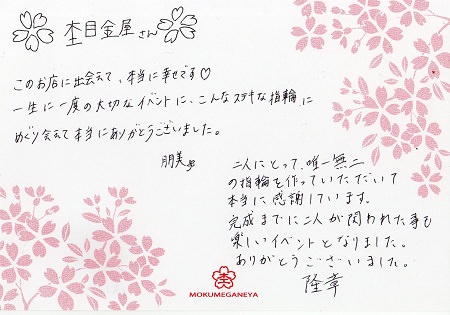 杢目金屋さん
このお店に出会えて、本当に幸せです♡
一生に一度の大切なイベントに、こんなステキな指輪に
めぐり会えて本当にありがとうございました。
朋美
二人にとって、唯一無二
の指輪を作っていただいて
本当に感謝しています。
完成までに二人が関われた事も
楽しいイベントとなりました。
ありがとうございました。
隆章
MOKUMEGANEYA